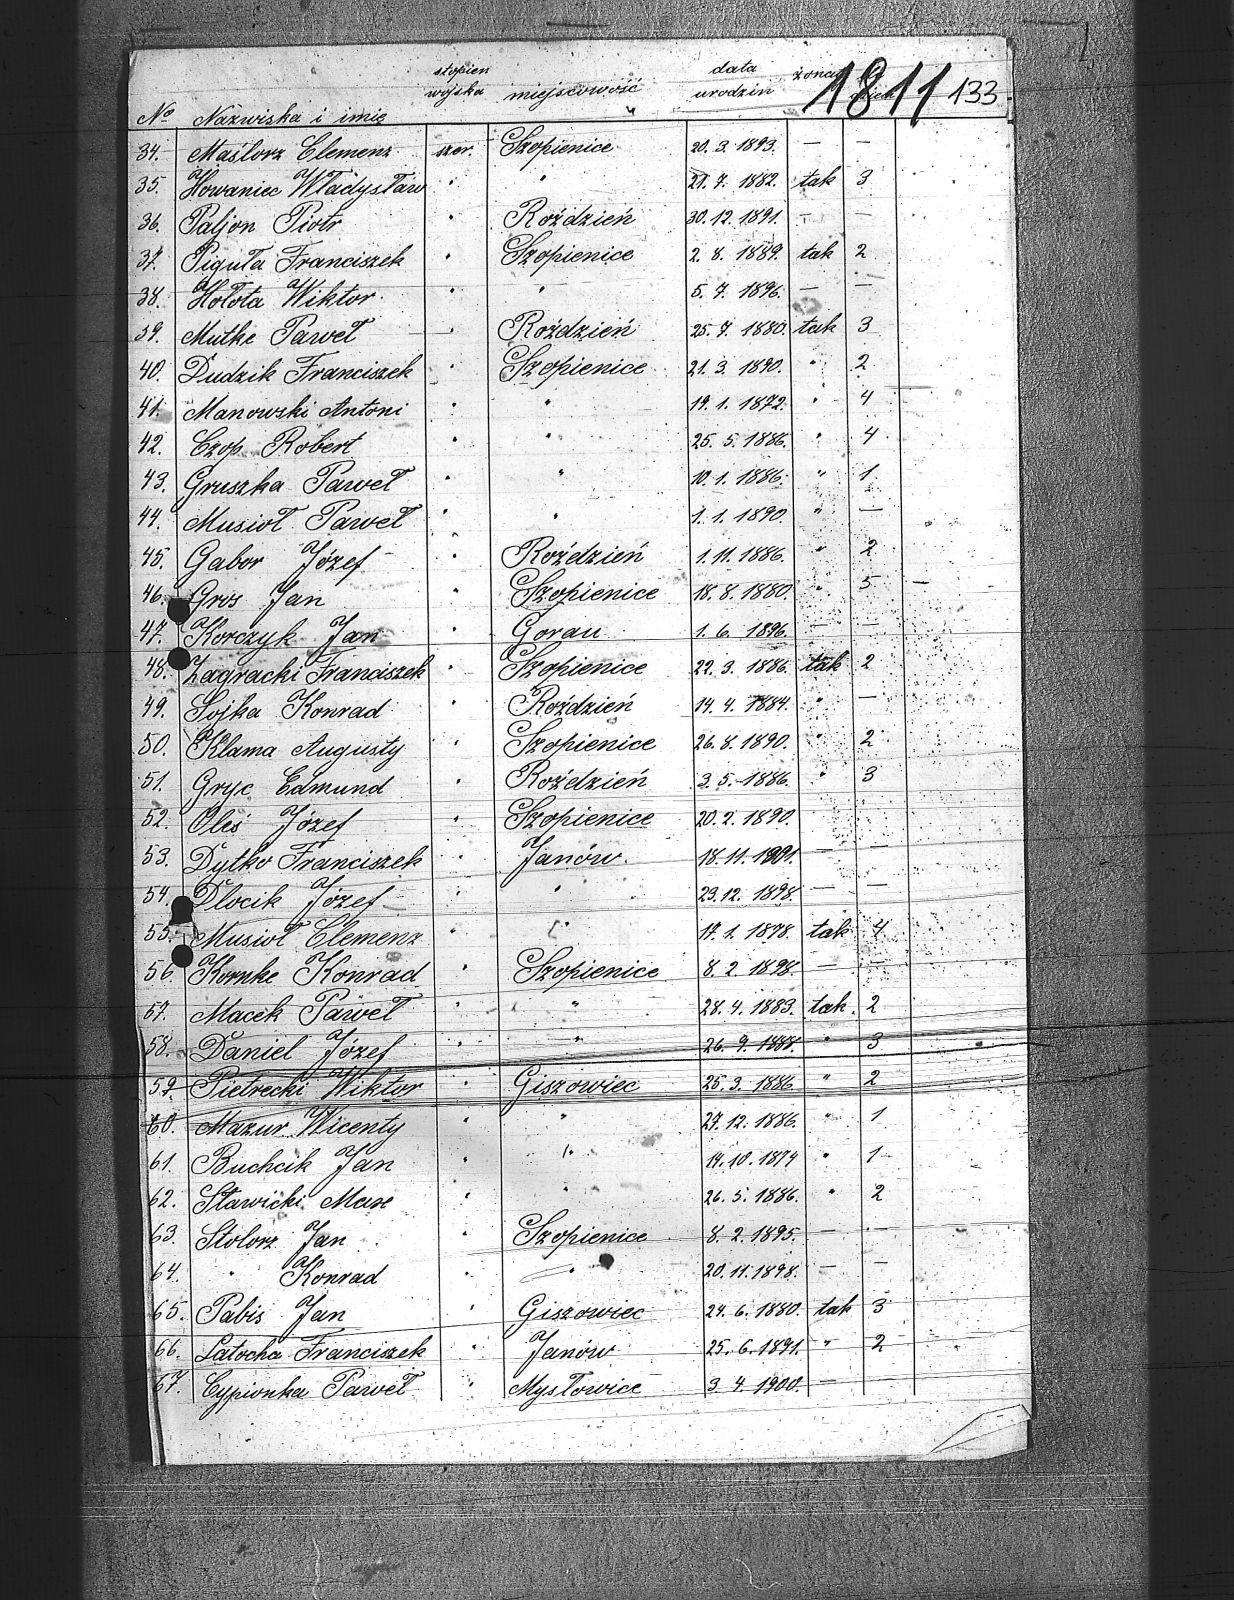 № Nazwiska i imię stopien wojska miejscowość data urodzin żonaty 1811 133
34. Maślorz Clemenz szer. Szopienice 20. 3. 1893. — —
35. Howaniec Władysław " " 21. 7. 1882. tak 3
36. Paljon Piotr " Roździeń 30. 12. 1891. — —
37. Piguła Franciszek " Szopienice 2. 8. 1889. tak 2
38. Hołota Wiktor " " 5. 7. 1896. — —
39. Mutke Paweł " Roździeń 25. 7. 1880. tak 3
40. Dudzik Franciszek " Szopienice 21. 3. 1890. " 2
41. Manowski Antoni " " 19. 1. 1872. " 4
42. Czop Robert " " 25. 5. 1886. " 4
43. Gruszka Paweł " " 10. 1. 1886. " 1
44. Musioł Paweł " " 1. 1. 1890. " —
45. Gabor Józef " Roździeń 1. 11. 1886. " 2
46. Gros Jan " Szopienice 18. 8. 1880. " 5
47. Korczyk Jan " Gorau 1. 6. 1896. — —
48. Zagracki Franciszek " Szopienice 22. 3. 1886. tak 2
49. Sojka Konrad " Roździeń 14. 4. 1884. " —
50. Klama Augusty " Szopienice 26. 8. 1890. " 2
51. Gryc Edmund " Roździeń 3. 5. 1886. " 3
52. Oleś Józef " Szopienice 20. 2. 1890. — —
53. Dytko Franciszek " Janów 18. 11. 1901. — —
54. Dlocik Józef " " 23. 12. 1898. — —
55. Musioł Clemenz " 17. 1. 1878. tak 4
56. Kornke Konrad " Szopienice 8. 2. 1898 — —
57. Macek Paweł " " 28. 4. 1883. tak. 2
58. Daniel Józef " " 26. 9. " 3
59. Pietrecki Wiktor " Giszowiec 25. 3. 1886 " 2
60. Mazur Wicenty " " 27. 12. 1886. " 1
61. Buchcik Jan " " 14. 10. 1874 " 1
62. Sławicki Max " " 26. 5. 1886. " 2
63. Stolorz Jan " Szopienice 8. 2. 1895. — —
64. " Konrad " " 20. 11. 1898. — —
65. Pabis Jan " Giszowiec 24. 6. 1880. tak 3
66. Latocha Franciszek " Janów 25. 6. 1891. " 2
67. Cypionka Paweł " Mysłowice 3. 4. 1900. — —